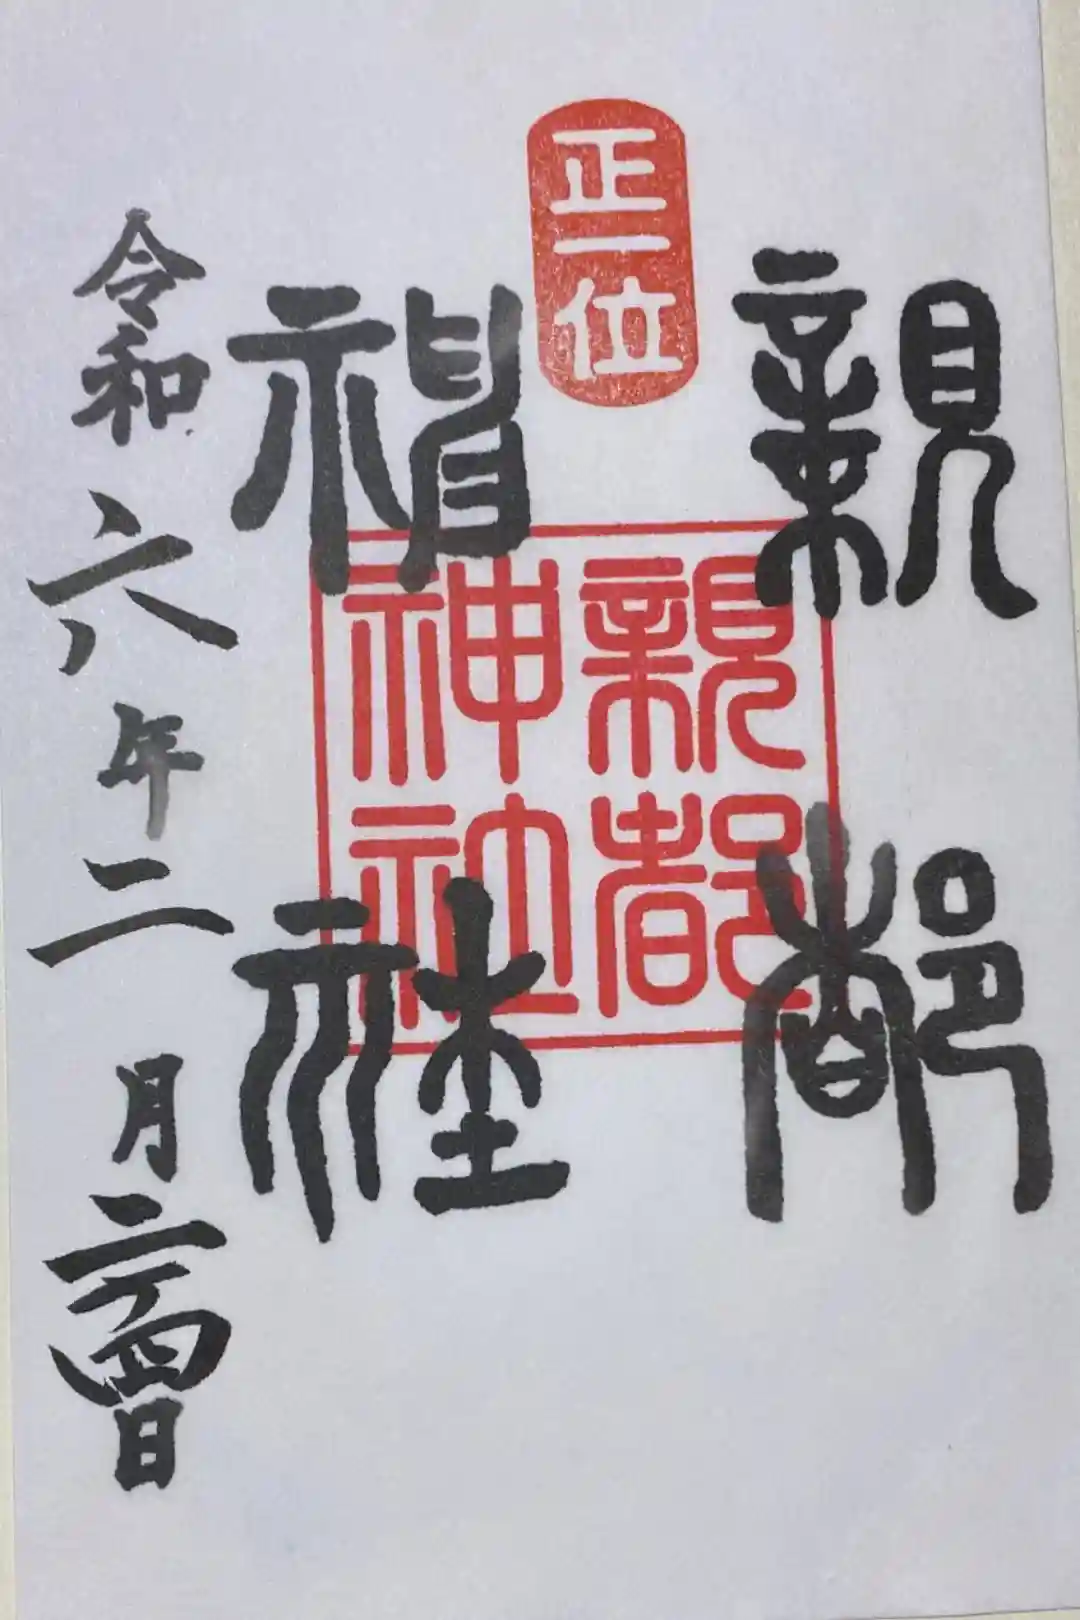 正一位
親都
神社
親都
神社
令和六年二月二十四日